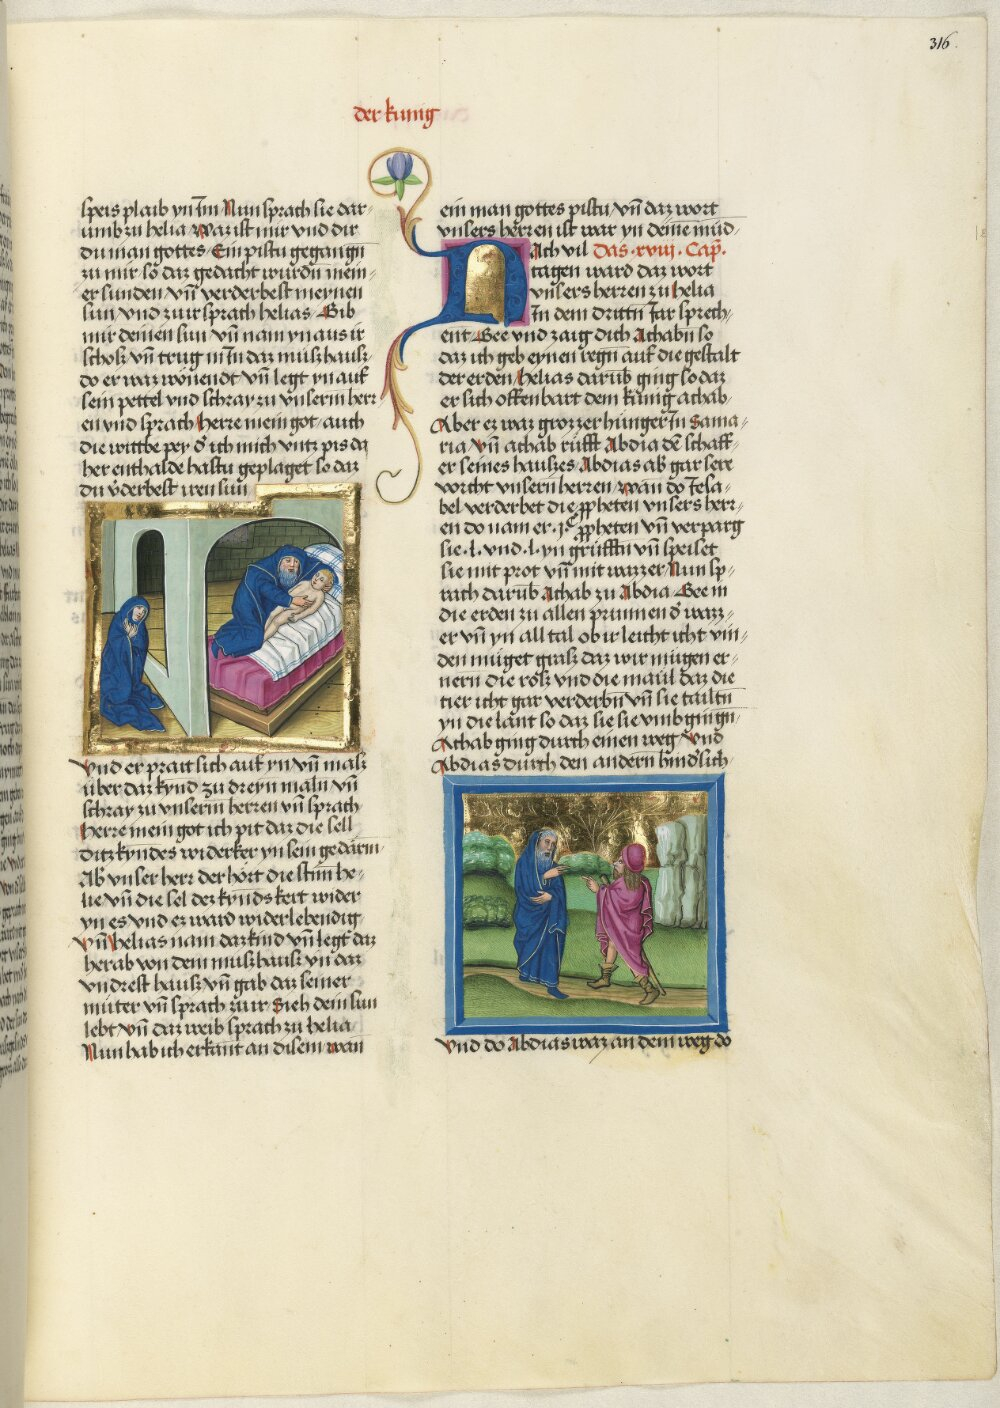 316
der kunig
speis plaib yn Im Nun sprach sie dar⸗
umb zu helia Waz ist mir vnd dir
du man gottes Ein pistu gegangn̄
zu mir so daz gedacht wurdn̄ mein⸗
er sunden vn̄ verderbest meynen
sun vnd zu ir sprach helias Gib
mir deinen sun vn̄ nam yn aus ir
schosz vn̄ trug in In daz muszhausz
do er waz wonendt vn̄ legt yn auf
sein pettel vnd schray zu vnserm herr
en vnd sprach herre mein got auch
die wittbe pey d̓ ich mich vntz pis da
her enthalde hastu geplaget so daz
du v̓derbest iren sun
Vnd er prait sich auf yn vn̄ masz
über daz kynd zu dreyn maln̄ vn̄
schray zu vnserm herren vn̄ sprach
herre mein got ich pit daz die sell
ditz kyndes widerker yn sein gedarm
Ab̓ vnser herr der hört die stim he⸗
lie vn̄ die sel dez kynds kert wider
yn es vnd ez ward wider lebendig
vn̄ helias nam daz kind vn̄ legt daz
herab von dem muszhausz yn daz
vndrest hausz vn̄ gab daz seiner
muter vn̄ sprach zu ir Sieh dein sun
lebt vn̄ daz weib sprach zu helia
Nun hab ich erkant an disem wan
ein man gottes pistu vn̄ daz wort
vnsers herren ist war yn deine mūd
Nach vil Das xviii Cap̄.
tagen ward daz wort
vnsers herren zu helia
In dem drittn̄ Jar sprech⸗
ent Gee vnd zaig dich Achabn̄ so
daz ich geb eynen regn̄ auf die gestalt
der erden helias darub̄ ging so daz
er sich offenbart dem kunig achab
Aber ez waz grozzer hunger In Sama⸗
ria Vn̄ achab rufft Abdia dē schaff⸗
er seines hauszes Abdias ab̓ gar sere
vorcht vnsern herren wan do Jesa⸗
bel verderbet die p̄pheten vnsers herr⸗
en do nam er .jᶜ. p̄pheten vn̄ verparg
sie .l. vnd .l. yn grufftn̄ vn̄ speiset
sie mit prot vn̄ mit wazzer Nun sp⸗
rach darub̄ Achab zu Abdia Gee in
die erden zu allen prunnen d̓ wazz⸗
er vn̄ yn all tal ob ir leicht icht vin⸗
den müget grasz daz wir mugen er⸗
nern die rösz vnd die maul daz die
tier icht gar verderbn̄ vn̄ sie tailtn̄
yn die lant so daz sie sie vmbgingn̄
Achab ging durch einen weg Vnd
Abdias durch den andern bsund̓lich
Vnd do Abdias waz an dem weg do